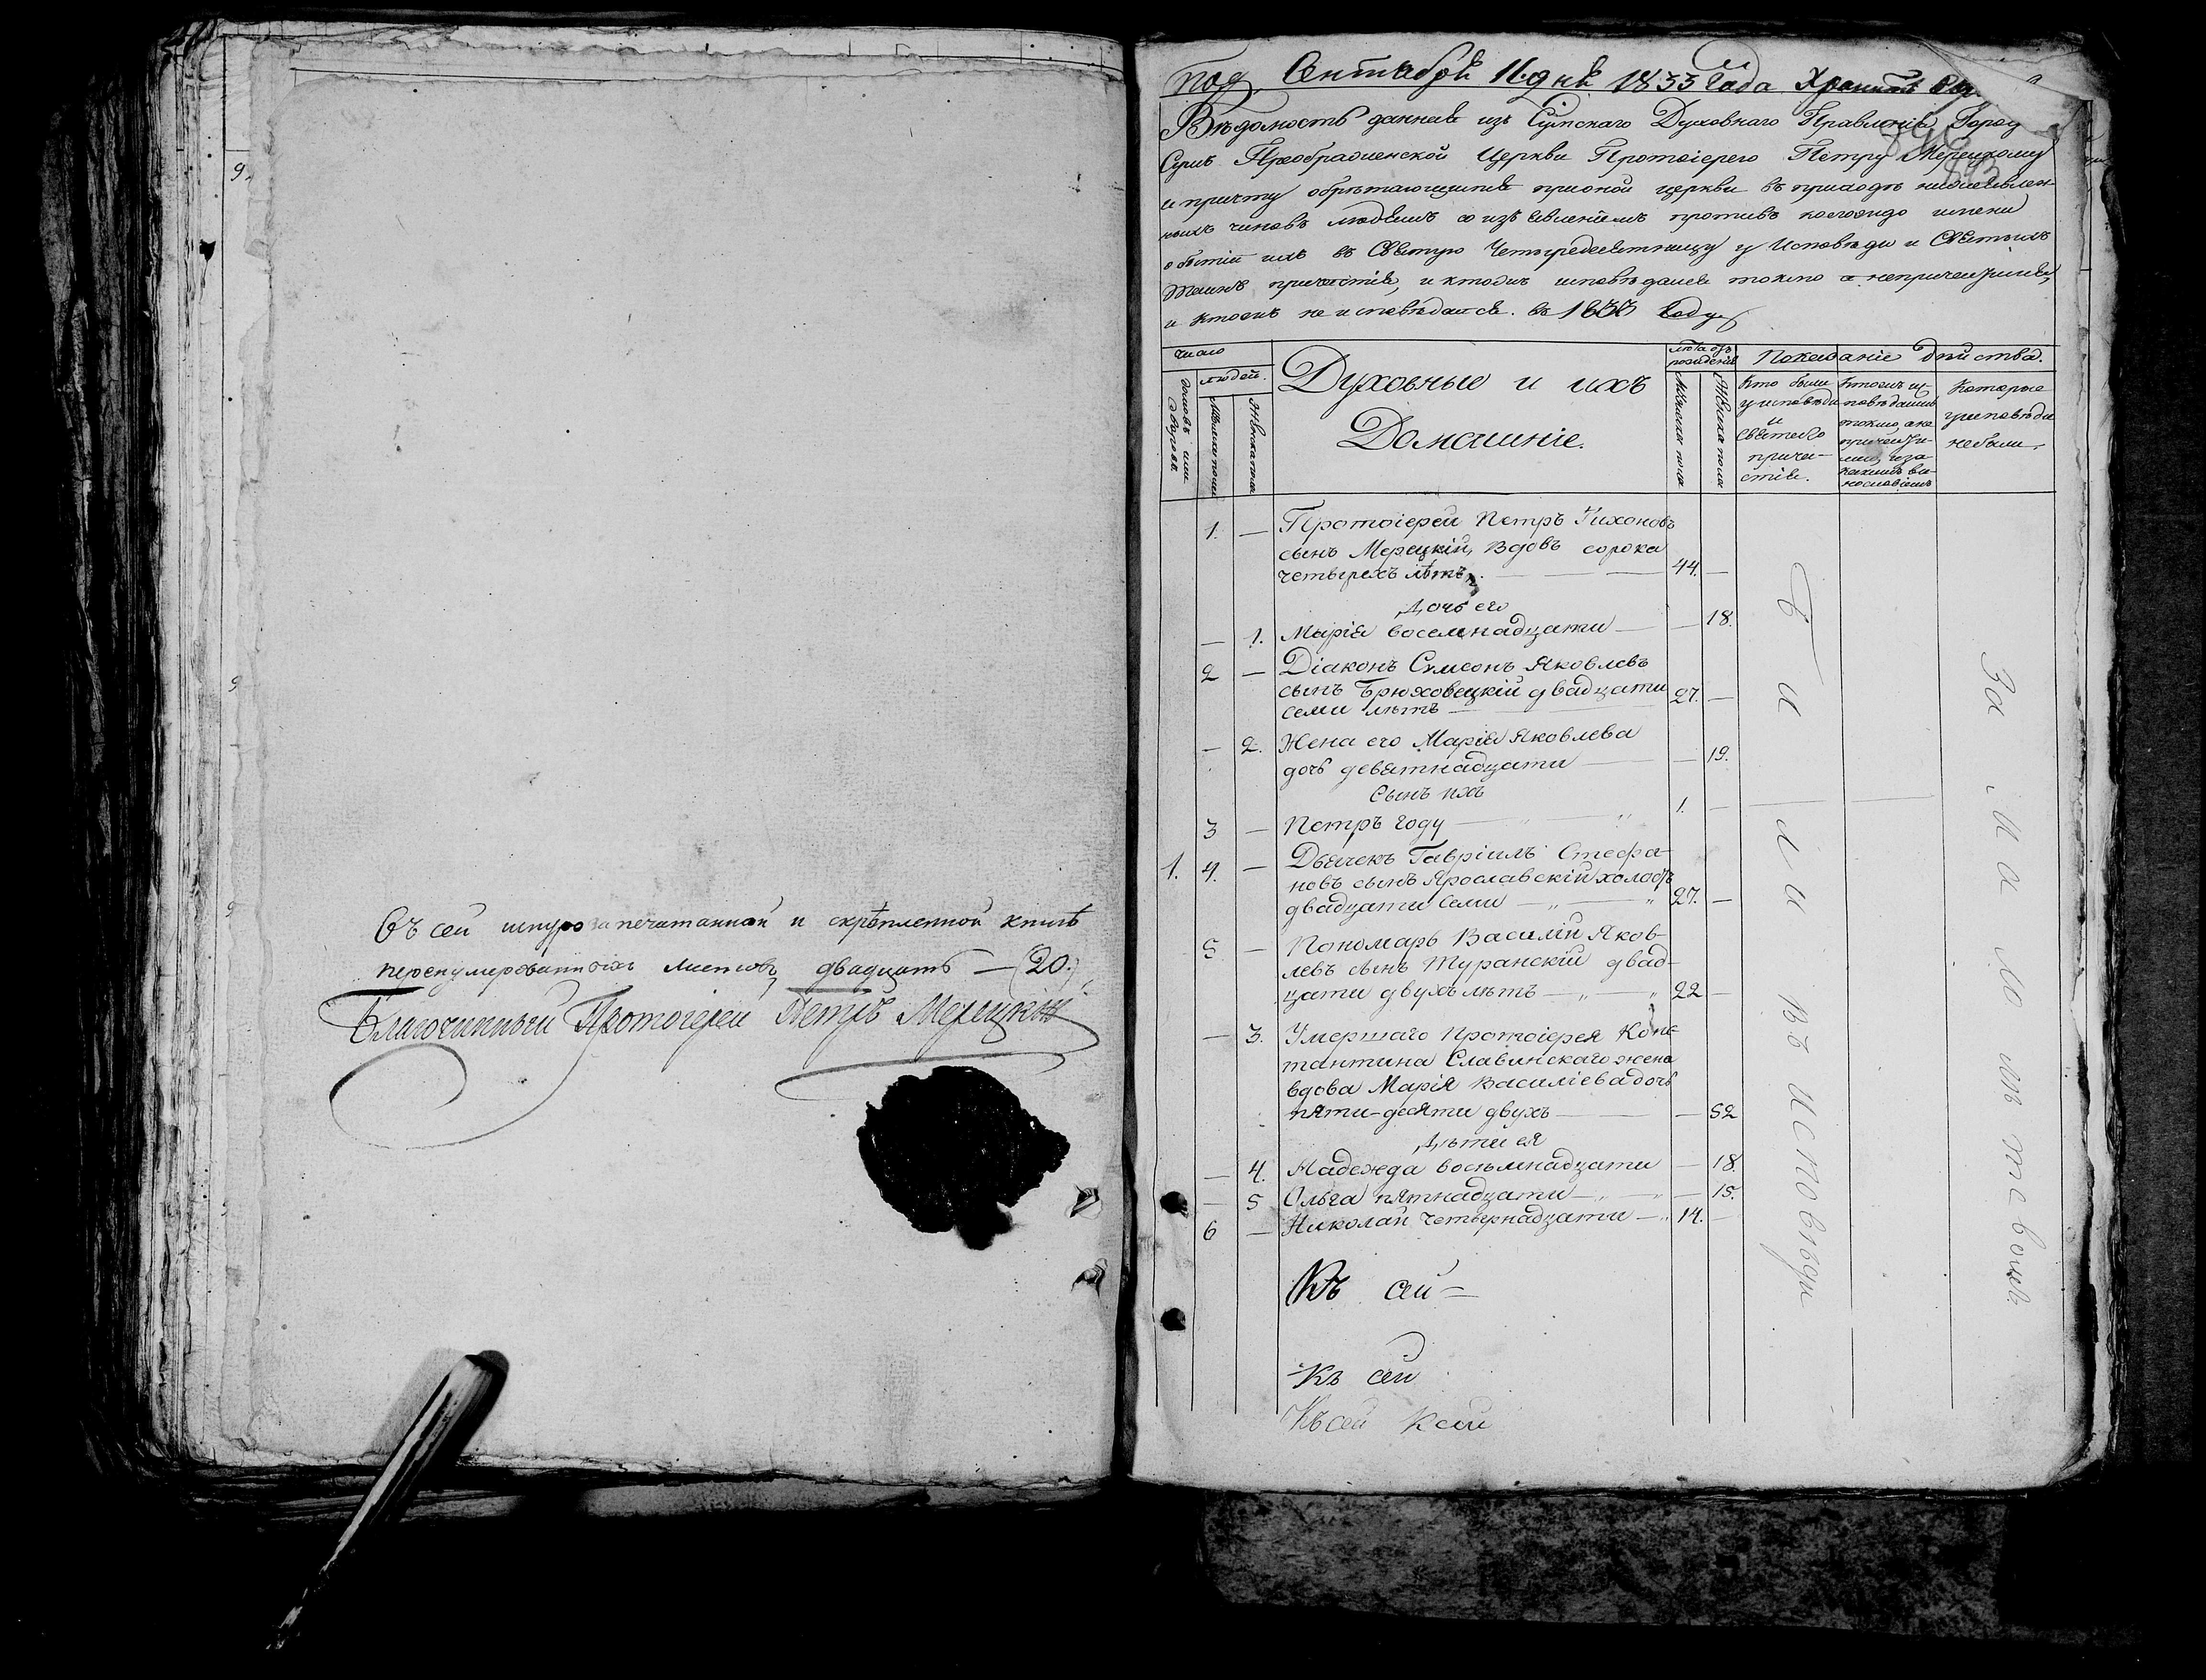 Въ сей шнурозапечатанной и скрѣпленной книгѣ
перенумерованныхъ листовъ двадцать — (20.)
Благочинный Протоіерей Петръ Мерецкій
под. Сентября 11. дня 1833 Года Хранить
Вѣдомость данная изъ Сумскаго Духовнаго Правленія Город
Сумъ Преображенской Церкви Протоіерею Петру Мерецкому
и причту обрѣтающимся при оной церкви въ приходѣ нижеявлен-
ныхъ чиновъ людямъ со изъявленіемъ противъ коегождо имени
о бытіи ихъ въ Святую Четыредесятницу у Исповѣди и Святыхъ
Таинъ причастія, и ктожъ исповѣдался токмо а непричастился,
и ктожъ не исповѣдался. въ 1833 Году
Число
людей.
домовъ или дворовъ
Мужеска пола
Женска пола
Духовные и ихъ
Домашніе.
лѣта отъ
рожденія
Мужеска пола
Женска пола
Показаніе дѣйства.
Кто были
у исповѣди
и
Святаго
прича-
стія.
Ктожъ ис-
повѣдались
токмо, а не
причасти-
лись, и за
какимъ ви-
нословіемъ
Которые
у исповѣди
небыли.
1. — Протоіерей Петръ Тихоновъ
сынъ Мерецкій, вдовъ сорока
четырехъ лѣтъ. — 44. —
Дочь его
— 1. Марія восемнадцати — — 18.
2 — Діаконъ Симеонъ Яковлевъ
сынъ Брюховецкій двадцати
семи лѣтъ — 27. —
— 2. Жена его Марія Яковлева
дочь девятнадцати — — 19.
Сынъ ихъ
3 — Петръ году — 1. —
1. 4. — Дьячекъ Гавріилъ Стефа-
новъ сынъ Ярославскій холостъ
двадцати семи — 27. —
5 — Пономарь Василій Яков-
левъ сынъ Туранскій двад-
цати двухъ лѣтъ — 22 —
— 3. Умершаго протоіерея Конс-
тантина Славинскаго жена
вдова Марія Василіева дочь
пяти-десяти двухъ — — 52
Дѣти ея
— 4. Надежда восьмнадцати — — 18.
— 5 Ольга пятнадцати — — 15.
6 — Николай четырнадцати — 14. —
Къ сей —
Къ сей
Къ сей К сей